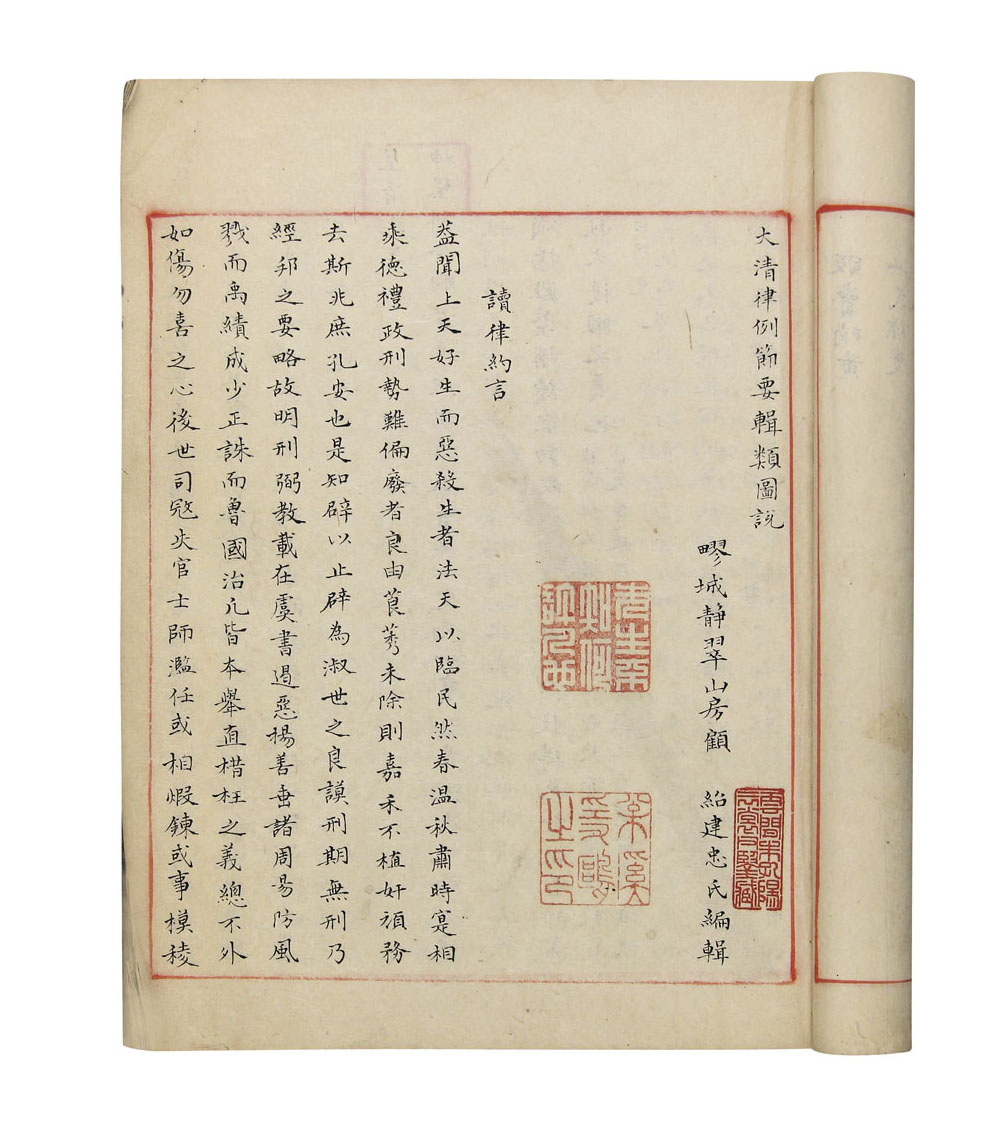 大清律例節要輯類圖説
疁城靜翠山房顧 紹建忠氏編輯
讀律約言
葢聞上天好生而惡殺生者法天以臨民然春温秋肅時寔相
乘德禮政刑勢難偏廢者良由莨莠未除則嘉禾不植奸頑務
去斯兆庶孔安也是知辟以止辟為淑世之良謨刑期無刑乃
經邦之要略故明刑弼教載在虞書遏惡揚善垂諸周易防風
戮而禹績成少正誅而魯國治凢皆本舉直措枉之義總不外
如傷勿喜之心後世司寇失官士師濫任或相煆鍊或事模稜